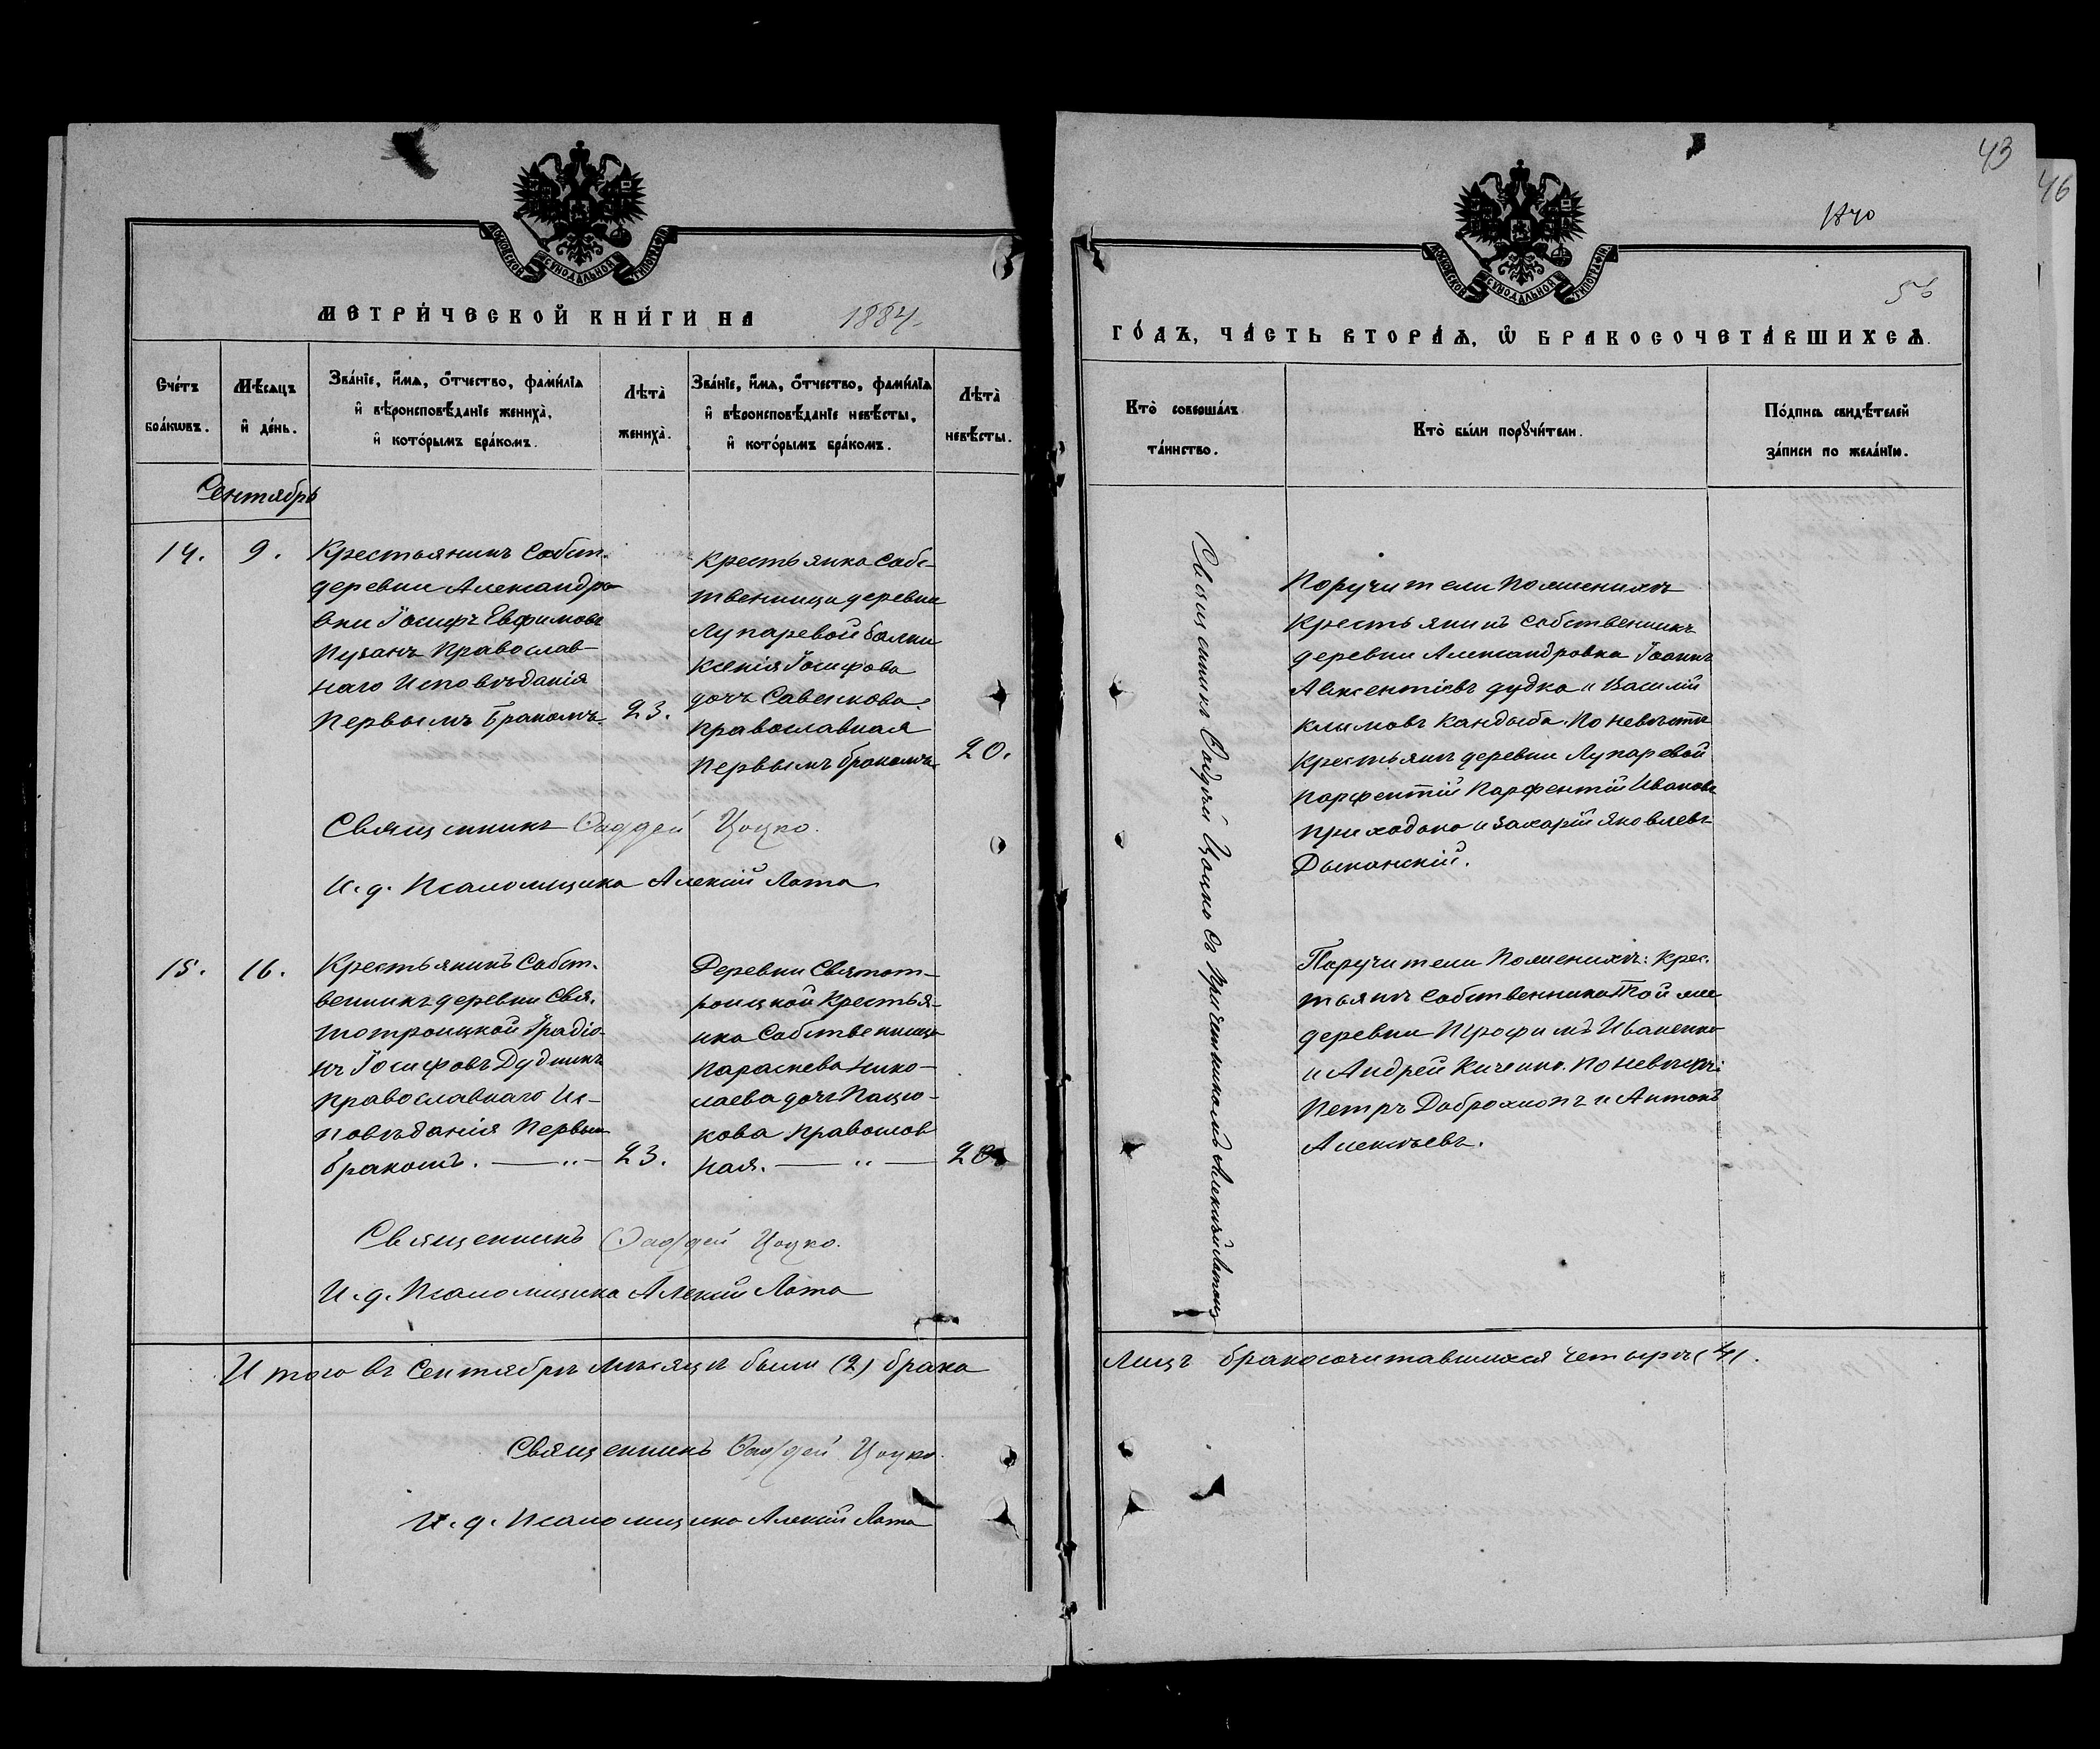 МОСКОВСКОЙ СѴНОДАЛЬНОЙ ТИПОГРАФІИ
МЕТРИ́ЧЕСКОЙ КНИ́ГИ НА 1884.
Сче́тъ бра́кѡвъ.
Мѣ́сѧцъ и҆ де́нь.
Зва́нїе, и҆́мѧ, ѻ҆́тчество, фами́лїѧ и҆ вѣроисповѣ́данїе жениха̀, и҆ кото́рымъ бра́комъ.
Лѣта̀ жениха̀.
Зва́нїе, и҆́мѧ, ѻ҆́тчество, фами́лїѧ и҆ вѣроисповѣ́данїе невѣ́сты, и҆ кото́рымъ бра́комъ.
Лѣта̀ невѣ́сты.
Сентябрь
14. 9.
Крестьянинъ Собст.
деревни Александро
вки Іосифъ Евфимовъ
Пузанъ Православ-
наго Исповѣданія
Первымъ Бракомъ. 23.
Крестьянка Собс-
твенница деревни
Лупаревой балки
Ксенія Іосифова
дочь Савенкова.
православная
Первымъ бракомъ. 20.
Священникъ Фаддей Цоцко.
И. д. Псаломщика Алексій Лата
15. 16.
Крестьянинъ Собст.
венникъ деревни Свя.
тотроицкой Іродіо
нъ Іосифовъ Дудникъ
православнаго Ис-
повѣданія Первым
бракомъ. — " — 23.
Деревни Святот-
роицкой Крестья-
нка Собственница
Параскева Нико-
лаева дочь Пацю-
кова Православ
ная. — " — 20.
Священникъ Фаддей Цоцко.
И. д. Псаломщика Алексій Лата
Итого въ Сентябрѣ мѣсяцѣ были (2) брака
Священникъ Фаддей Цоцко.
И. д. Псаломщика Алексій Лата
43
46
56
МОСКОВСКОЙ СѴНОДАЛЬНОЙ ТИПОГРАФІИ
ГО́ДЪ, ЧА́СТЬ ВТОРА́Ѧ, Ѡ҆ БРАКОСОЧЕТА́ВШИХСѦ.
Кто̀ соверша́лъ та́инство.
Кто̀ бы́ли порꙋчи́тели.
По́дпись свидѣ́телей за́писи по жела́нїю.
Священникъ Фаддей Цоцко съ причетникомъ Алексіемъ Латою
Поручители По женихѣ
Крестьянинъ Собственникъ
деревни Александровка Іоаннъ
Авксентіевъ дудка и Василій
Климовъ Кандыба. По невѣстѣ
Крестьянъ деревни Лупаревой
Парфентій Парфентій Ивановъ
Приходько и Захарій Яковлевъ
Дыканскій.
Поручители По женихѣ: Крес.
тьянъ Собственникъ Той же
деревни Трофимъ Иваненко
и Андрей Киченко. По невѣстѣ:
Петръ Доброхлопъ и Антонъ
Алексѣевъ.
Лицъ бракосочитавшихся четыре (4).